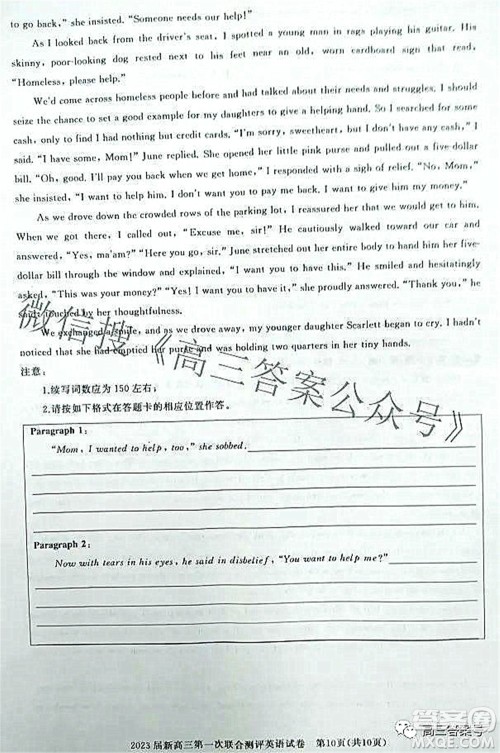 to go back," she insisted. "Someone needs our help!"
As I looked back from the driver's seat, I spotted a young man in rags playing his guitar. His
skinny, poor-looking dog rested next to his feet near an old, worn cardboard sign that read,
"Homeless, please help."
We'd come across homeless people before and had talked about their needs and struggles. I should
seize the chance to set a good example for my daughters to give a helping hand. So I searched for some
cash, only to find I had nothing but credit cards. "I'm sorry, sweetheart, but I don't have any cash," I
said. "I have some, Mom!" June replied. She opened her little pink purse and pulled out a five-dollar
bill. "Oh, good. I'll pay you back when we get home," I responded with a sigh of relief. "No, Mom,"
she insisted, "I want to help him. I don't want you to pay me back. I want to give him my money."
As we drove down the crowded rows of the parking lot, I reassured her that we would get to him.
When we got there, I called out, "Excuse me, sir!" He cautiously walked toward our car and
answered, "Yes, ma'am?" "Here you go, sir." June stretched out her entire body to hand him her five-
dollar bill through the window and explained, "I want you to have this." He smiled and hesitatingly
asked, "This was your money?" "Yes! I want you to have it," she proudly answered. "Thank you," he
said, touched by her thoughtfulness.
We exchanged a smile, and as we drove away, my younger daughter Scarlett began to cry. I hadn't
noticed that she had emptied her purse and was holding two quarters in her tiny hands.
注意：
1.续写词数应为 150 左右；
2.请按如下格式在答题卡的相应位置作答。
微信搜《高三答案公众号》
Paragraph 1：
"Mom, I wanted to help, too," she sobbed.
Paragraph 2：
Now with tears in his eyes, he said in disbelief, "You want to help me?"
2023 届新高三第一次联合测评英语试卷 第10页(共10页)
高三答案号